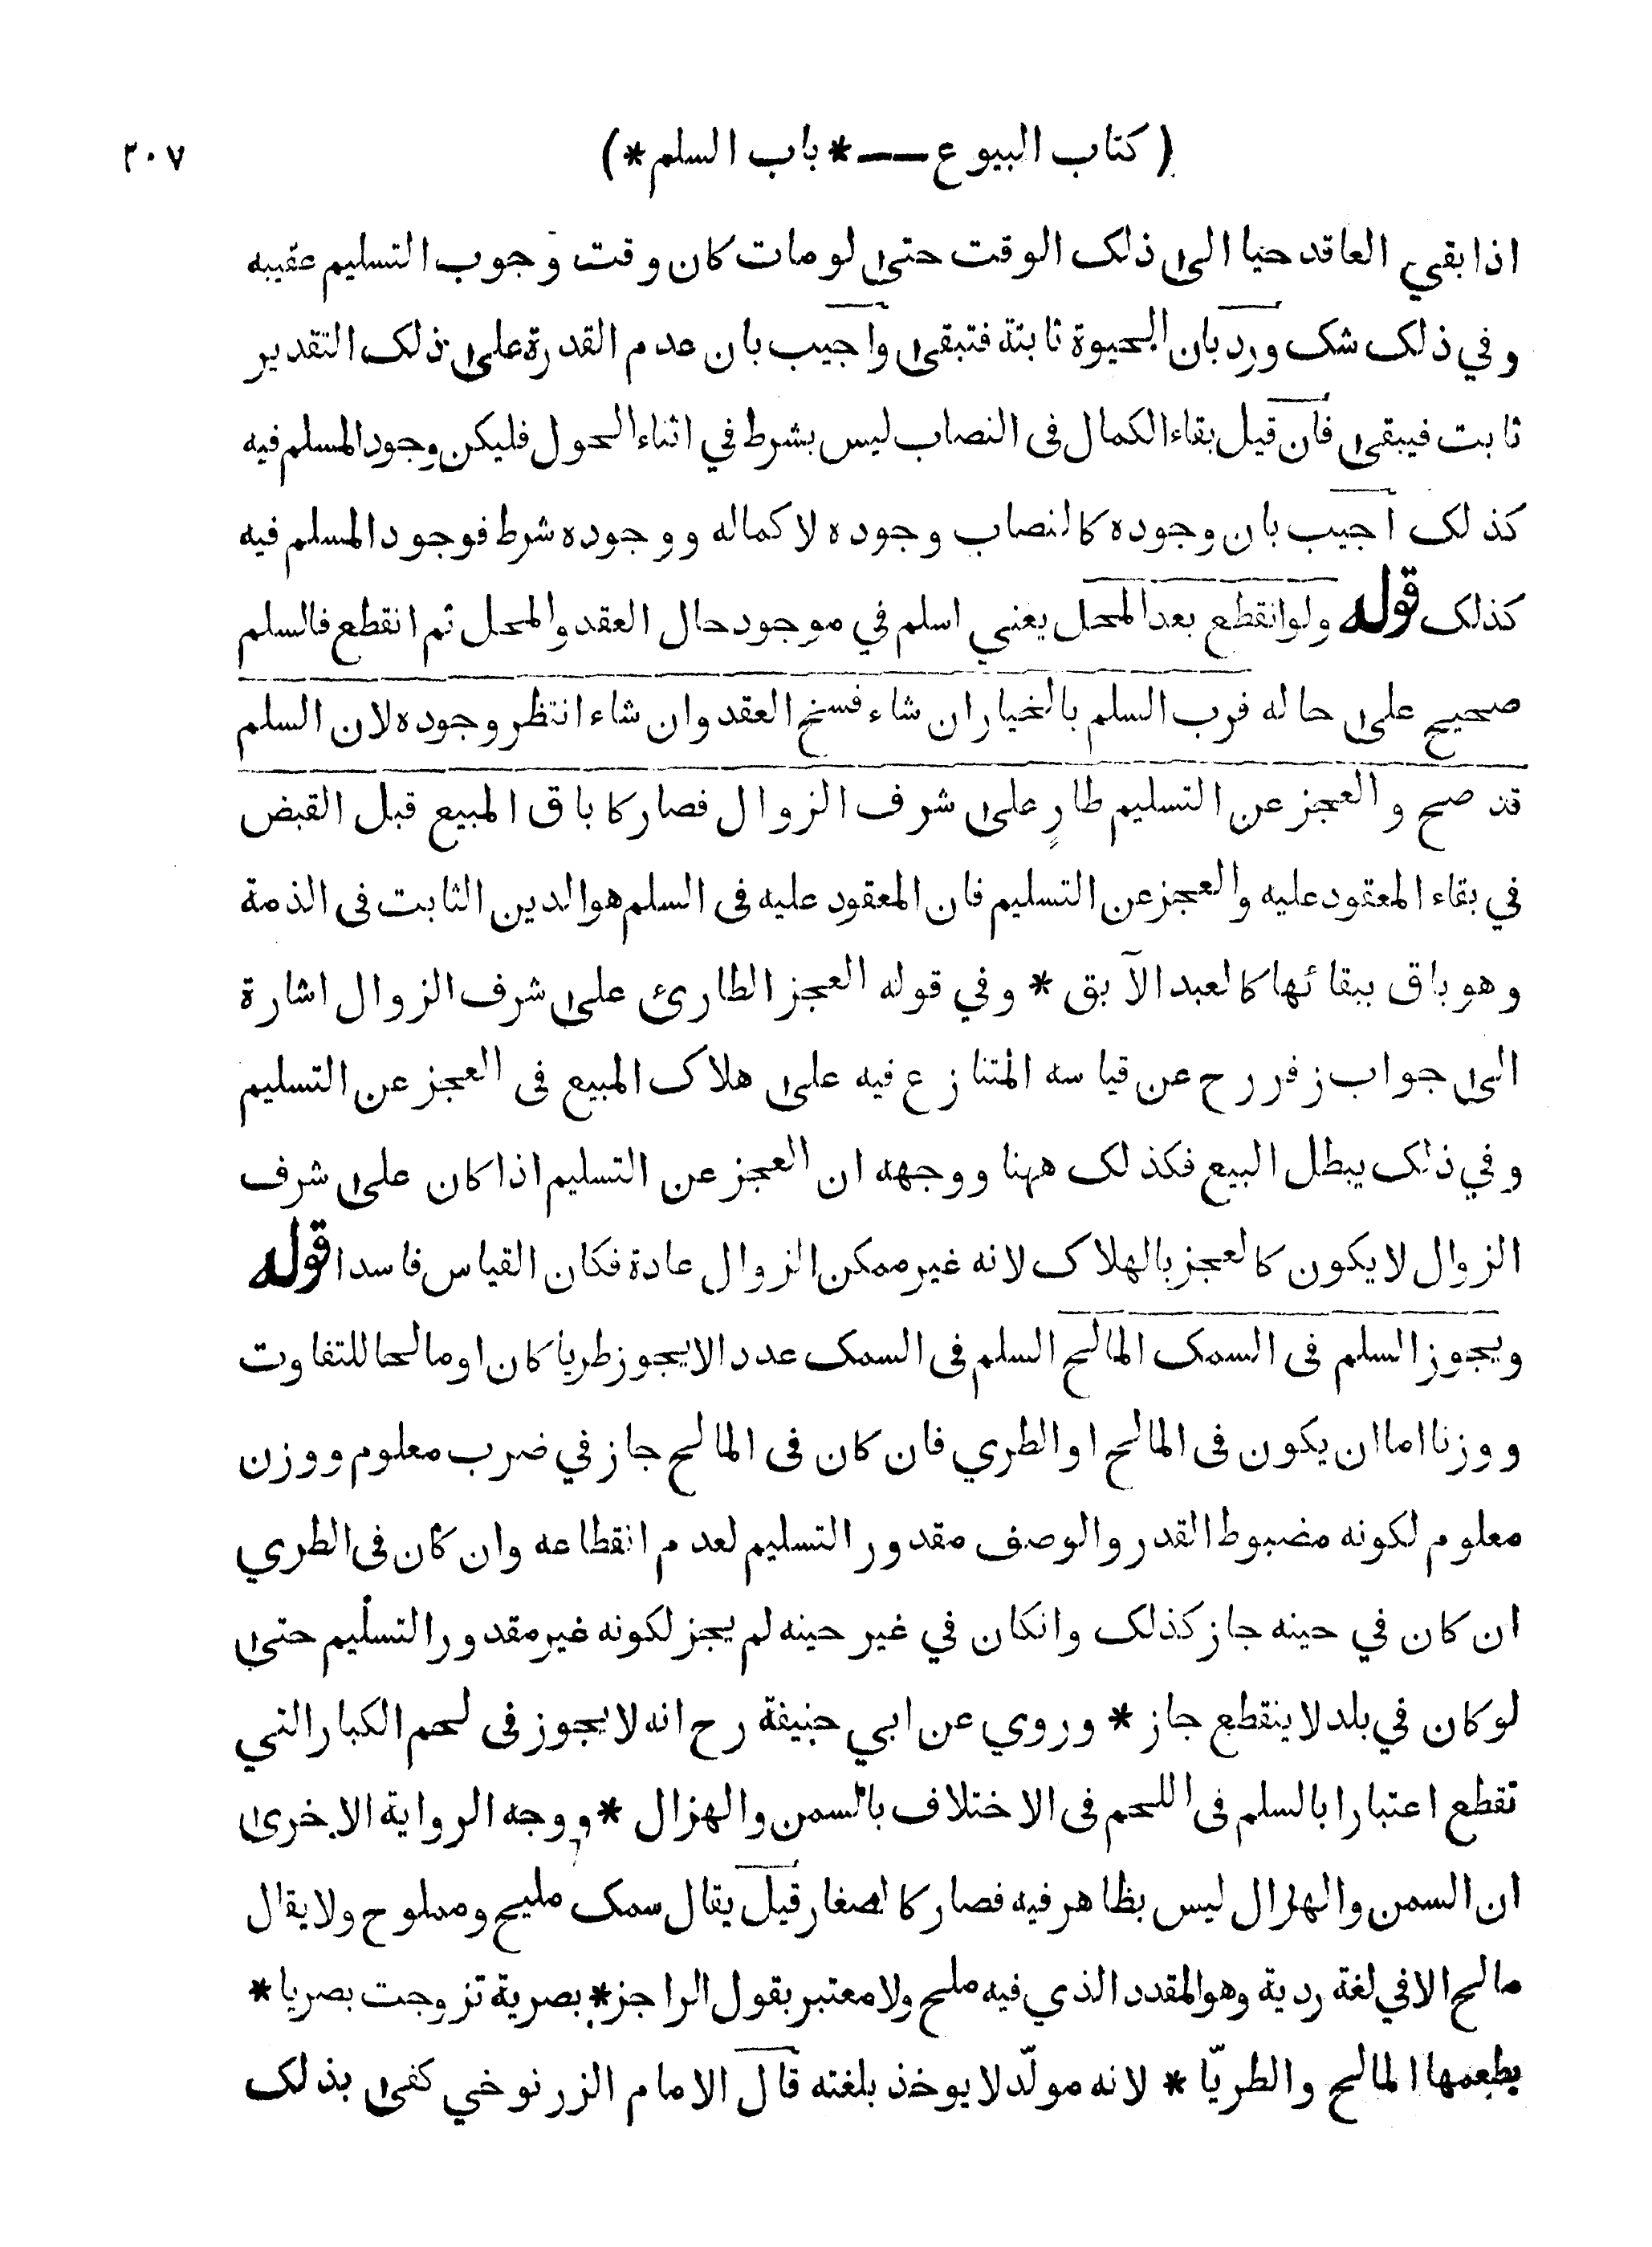 ( كتاب البيوع —— * باب السلم * ) ٢٠٧
اذا بقي العاقد حيا الى ذلك الوقت حتى لو مات كان وقت وجوب التسليم عقيبه
وفي ذلك شك ورد بان الحيوة ثابتة فتبقى واجيب بان عدم القدرة على ذلك التقدير
ثابت فيبقى فان قيل بقاء الكمال فى النصاب ليس بشرط في اثناء الحول فليكن وجود المسلم فيه
كذلك اجيب بان وجوده كالنصاب وجوده لا كماله ووجوده شرط فوجود المسلم فيه
كذلك قوله ولو انقطع بعد المحل يعني اسلم في موجود حال العقد والمحل ثم انقطع فالسلم
صحيح على حاله فرب السلم بالخيار ان شاء فسخ العقد وان شاء انتظر وجوده لان السلم
قد صح والعجز عن التسليم طارٍ على شرف الزوال فصار كاباق المبيع قبل القبض
في بقاء المعقود عليه والعجز عن التسليم فان المعقود عليه فى السلم هو الدين الثابت فى الذمة
وهو باق ببقائها كالعبد الآبق * وفي قوله العجز الطارئ على شرف الزوال اشارة
الى جواب زفر رح عن قياسه المتنازع فيه على هلاك المبيع فى العجز عن التسليم
وفي ذلك يبطل البيع فكذلك ههنا ووجهه ان العجز عن التسليم اذا كان على شرف
الزوال لا يكون كالعجز بالهلاك لانه غير ممكن الزوال عادة فكان القياس فاسدا قوله
ويجوز السلم فى السمك المالح السلم فى السمك عددا لا يجوز طريا كان او مالحا للتفاوت
ووزنا اما ان يكون فى المالح او الطري فان كان فى المالح جاز في ضرب معلوم ووزن
معلوم لكونه مضبوط القدر والوصف مقدور التسليم لعدم انقطاعه وان كان فى الطري
ان كان في حينه جاز كذلك وانكان في غير حينه لم يجز لكونه غير مقدور التسليم حتى
لو كان في بلد لا ينقطع جاز * وروي عن ابي حنيفة رح انه لا يجوز فى لحم الكبار التي
تقطع اعتبارا بالسلم فى اللحم فى الاختلاف بالسمن والهزال * ووجه الرواية الاخرى
ان السمن والهزال ليس بظاهر فيه فصار كالصغار قيل يقال سمك مليح ومملوح ولا يقال
مالح الا في لغة ردية وهو المقدد الذي فيه ملح ولا معتبر بقول الراجز * بصرية تزوجت بصريا *
يطعمها المالح والطريّا * لانه مولّد لا يوخذ بلغته قال الامام الزرنوخي كفى بذلك